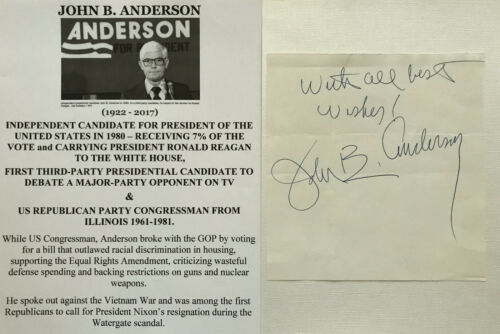 JOHN B. ANDERSON
ANDERSON
FOR PRESIDENT
(1922 - 2017)
INDEPENDENT CANDIDATE FOR PRESIDENT OF THE
UNITED STATES IN 1980 – RECEIVING 7% OF THE
VOTE and CARRYING PRESIDENT RONALD REAGAN
TO THE WHITE HOUSE,
FIRST THIRD-PARTY PRESIDENTIAL CANDIDATE TO
DEBATE A MAJOR-PARTY OPPONENT ON TV
&
US REPUBLICAN PARTY CONGRESSMAN FROM
ILLINOIS 1961-1981.
While US Congressman, Anderson broke with the GOP by voting
for a bill that outlawed racial discrimination in housing,
supporting the Equal Rights Amendment, criticizing wasteful
defense spending and backing restrictions on guns and nuclear
weapons.
He spoke out against the Vietnam War and was among the first
Republicans to call for President Nixon's resignation during the
Watergate scandal.
With all best
Wishes!
John B. Anderson